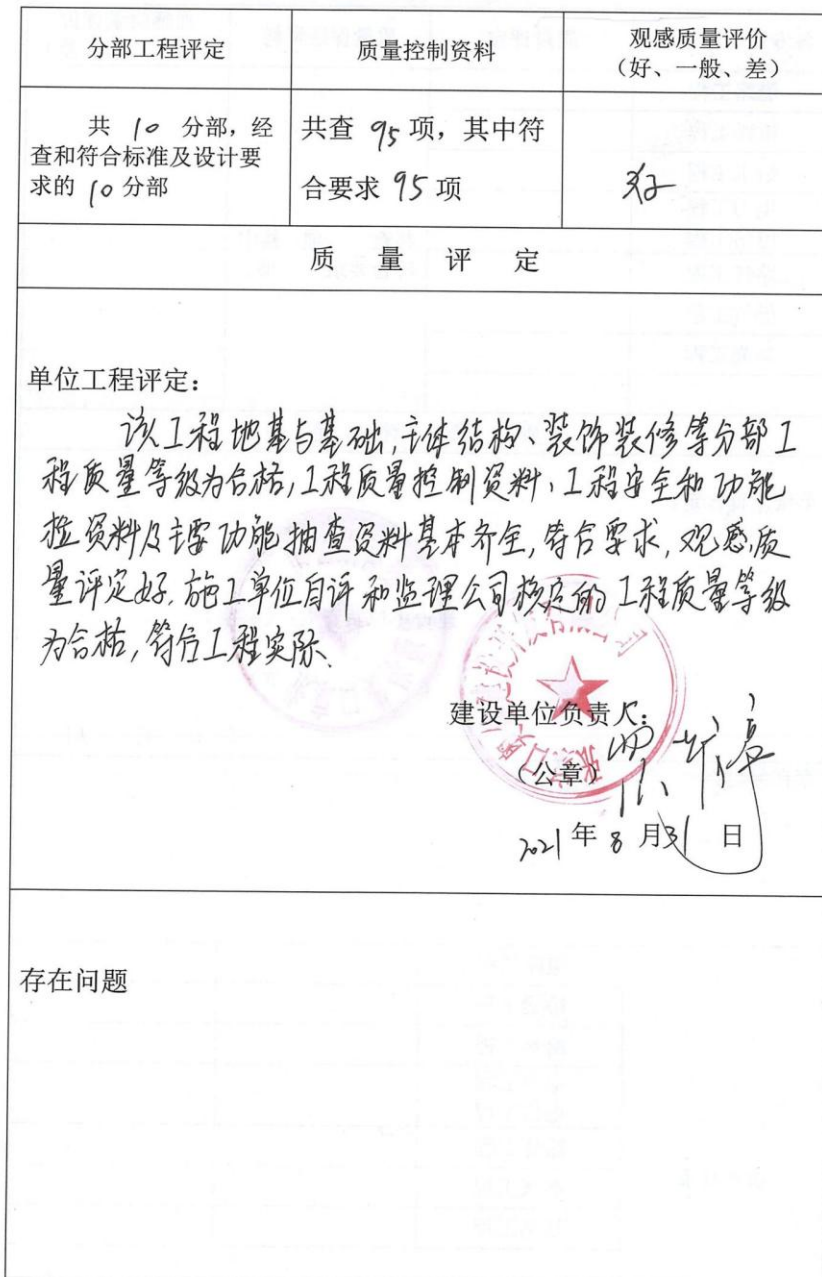 分部工程评定
质量控制资料
观感质量评价
（好、一般、差）
共 10 分部，经
查和符合标准及设计要
求的 10 分部
共查 95 项，其中符
合要求 95 项
好
质 量 评 定
单位工程评定：
该工程地基与基础,主体结构、装饰装修等分部工
程质量等级为合格,工程质量控制资料、工程安全和功能
检资料及主要功能抽查资料基本齐全,符合要求,观感质
量评定好.施工单位自评和监理公司核定的工程质量等级
为合格,符合工程实际.
建设单位负责人：
（公章）
2021 年 8 月 31 日
存在问题